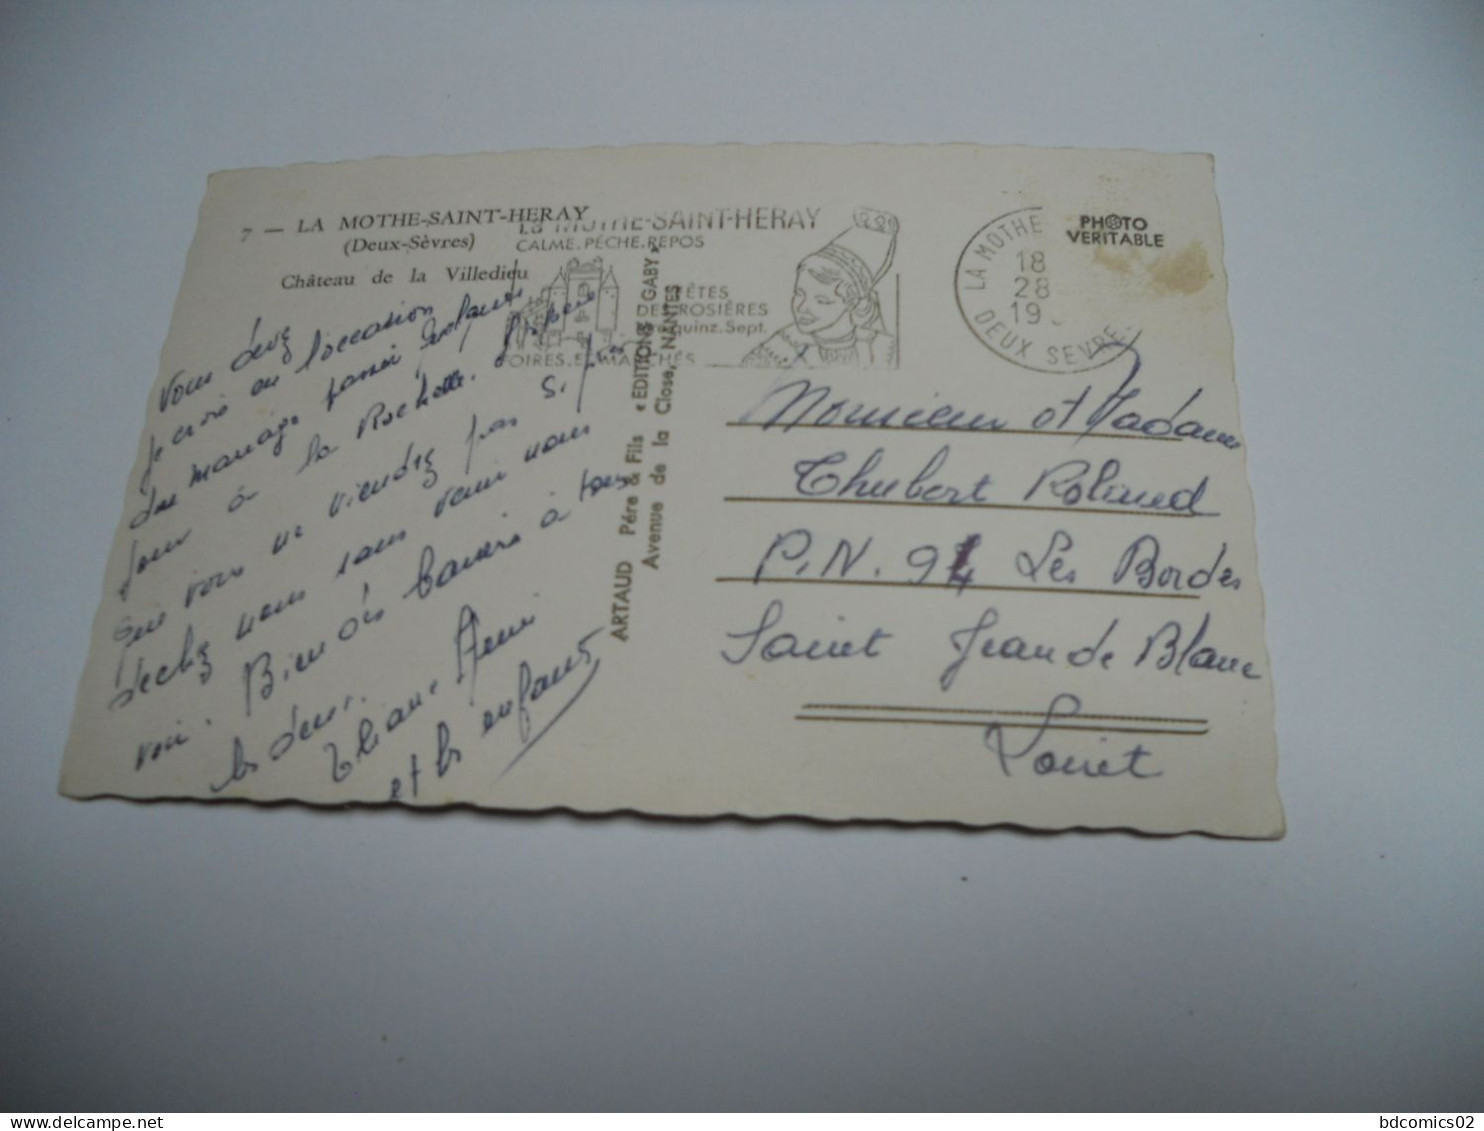 7 — LA MOTHE-SAINT-HERAY
(Deux-Sèvres)
Château de la Villedieu
La MOTHE-SAINT-HERAY
CALME. PÊCHE. REPOS
FÊTES
DES ROSIÈRES
quinz. Sept.
FOIRES. ET MARCHÉS
LA MOTHE
18
28
19
DEUX SEVRES
PHOTO
VERITABLE
ARTAUD Père & Fils « EDITIONS GABY »
Avenue de la Close, NANTES
Vous deux
je crois en l'occasion
du mariage
jour à la Rochelle.
que vous ne viendez pas si
sans venir nous
voir. Bien des baisers à tous
les deux.
et les enfants
Monsieur et Madame
Thubert Roland
P.N. 94 Les Bordes
Saint Jean de Blanc
Loiret
bdcomics02